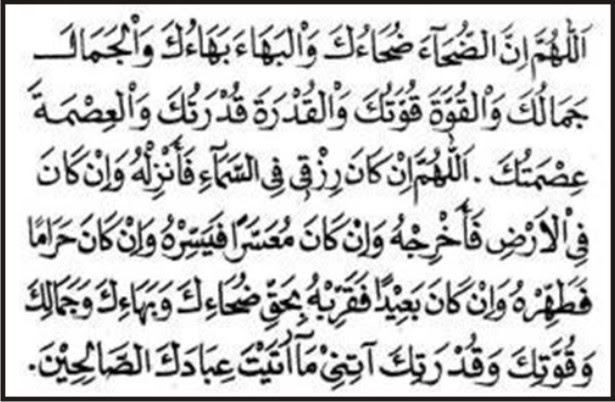 اَللّٰهُمَّ اِنَّ الضُّحَآءَ ضُحَاءُكَ وَالْبَهَاءَ بَهَاءُكَ وَالْجَمَالَ
جَمَالُكَ وَالْقُوَّةَ قُوَّتُكَ وَالْقُدْرَةَ قُدْرَتُكَ وَالْعِصْمَةَ
عِصْمَتُكَ . اَللّٰهُمَّ اِنْ كَانَ رِزْقِى فِى السَّمَآءِ فَأَنْزِلْهُ وَاِنْ كَانَ
فِى الْاَرْضِ فَأَخْرِجْهُ وَاِنْ كَانَ مُعَسَّرًا فَيَسِّرْهُ وَاِنْ كَانَ حَرَامًا
فَطَهِّرْهُ وَاِنْ كَانَ بَعِيْدًا فَقَرِّبْهُ بِحَقِّ ضُحَاءِكَ وَبَهَاءِكَ وَجَمَالِكَ
وَقُوَّتِكَ وَقُدْرَتِكَ آتِنِىْ مَآاَتَيْتَ عِبَادَكَ الصَّالِحِيْنَ.